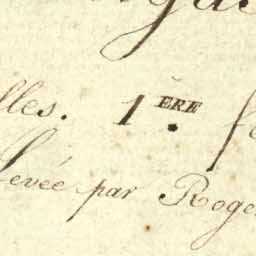 lles. 1.ERE
levée par Roge